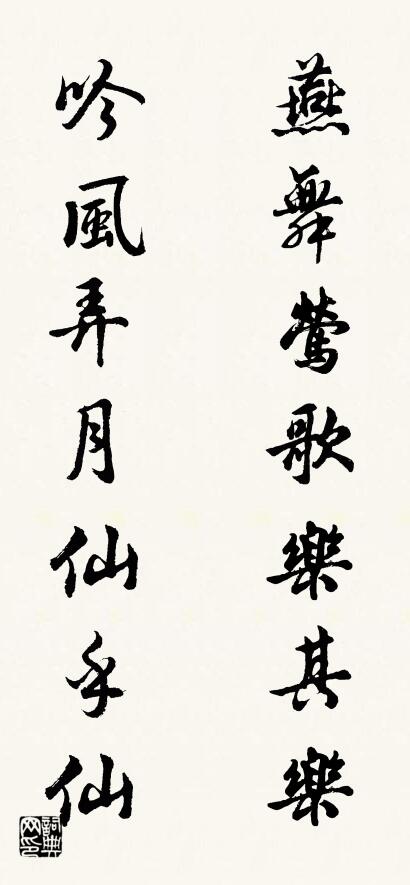 燕舞鶯歌樂其樂
吟風弄月仙乎仙
詞典网印